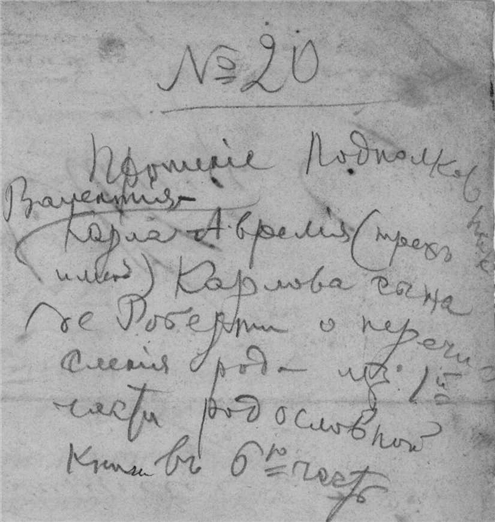 № 20
Прошеніе Подполковника
Валентія
Карла Аврелія (трехъ
именъ) Карлова сына
де Роберти о перечи-
сленіи рода изъ 1ой
части родословной
Книги въ 6ю часть